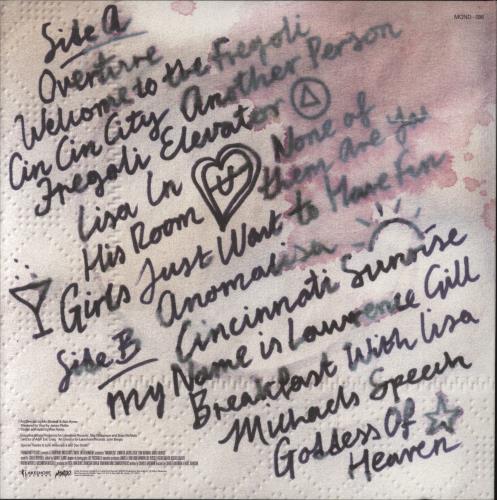 MOND-086
Side A
Overture
Welcome to the Fregoli
Cin Cin City Another Person
Fregoli Elevator
Lisa In His Room
None of them are you
Girls Just Want to Have Fun
Anomalisa
Cincinnati Sunrise
Side B
My Name is Lawrence Gill
Breakfast With Lisa
Michaels Speech
Goddess Of Heaven
LAKESHORE
MONDO